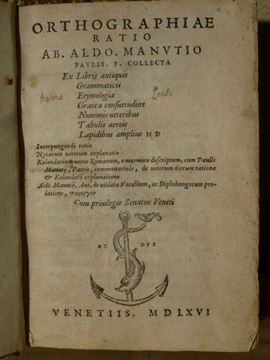 ORTHOGRAPHIAE
RATIO
AB. ALDO. MANVTIO
PAVLLI. F. COLLECTA
Ex Libris antiquis
Grammaticis
Etymologia
Graeca consuetudine
Nummis veteribus
Tabulis aereis
Lapidibus amplius M D
Interpungendi ratio
Notarum veterum explanatio
Kalendarium vetus Romanum, e marmore descriptum, cum Paulli
Manutij, Patris, commentariolo, de veterum dierum ratione
& Kalendarij explanatione
Aldi Manutij, Aui, de vitiata Vocalium, ac Diphthongorum pro-
latione, πάρεργον
Cum priuilegio Senatus Veneti
AL DVS
VENETIIS. M D LXVI